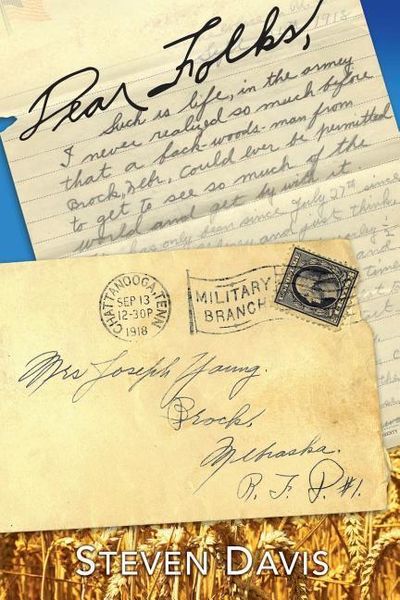 1918
Dear Folks,
Such is life, in the army
I never realized so much before
that a back-woods-man from
Brock, Nebr, could ever be permitted
to get to see so much of the
world and get by with it
has only been since July 27th since
and just think,
CHATTANOOGA, TENN
SEP 13
12-30P
1918
MILITARY
BRANCH
Mrs Joseph Young.
Brock,
Nebraska.
R. F. D. #1.
STEVEN DAVIS